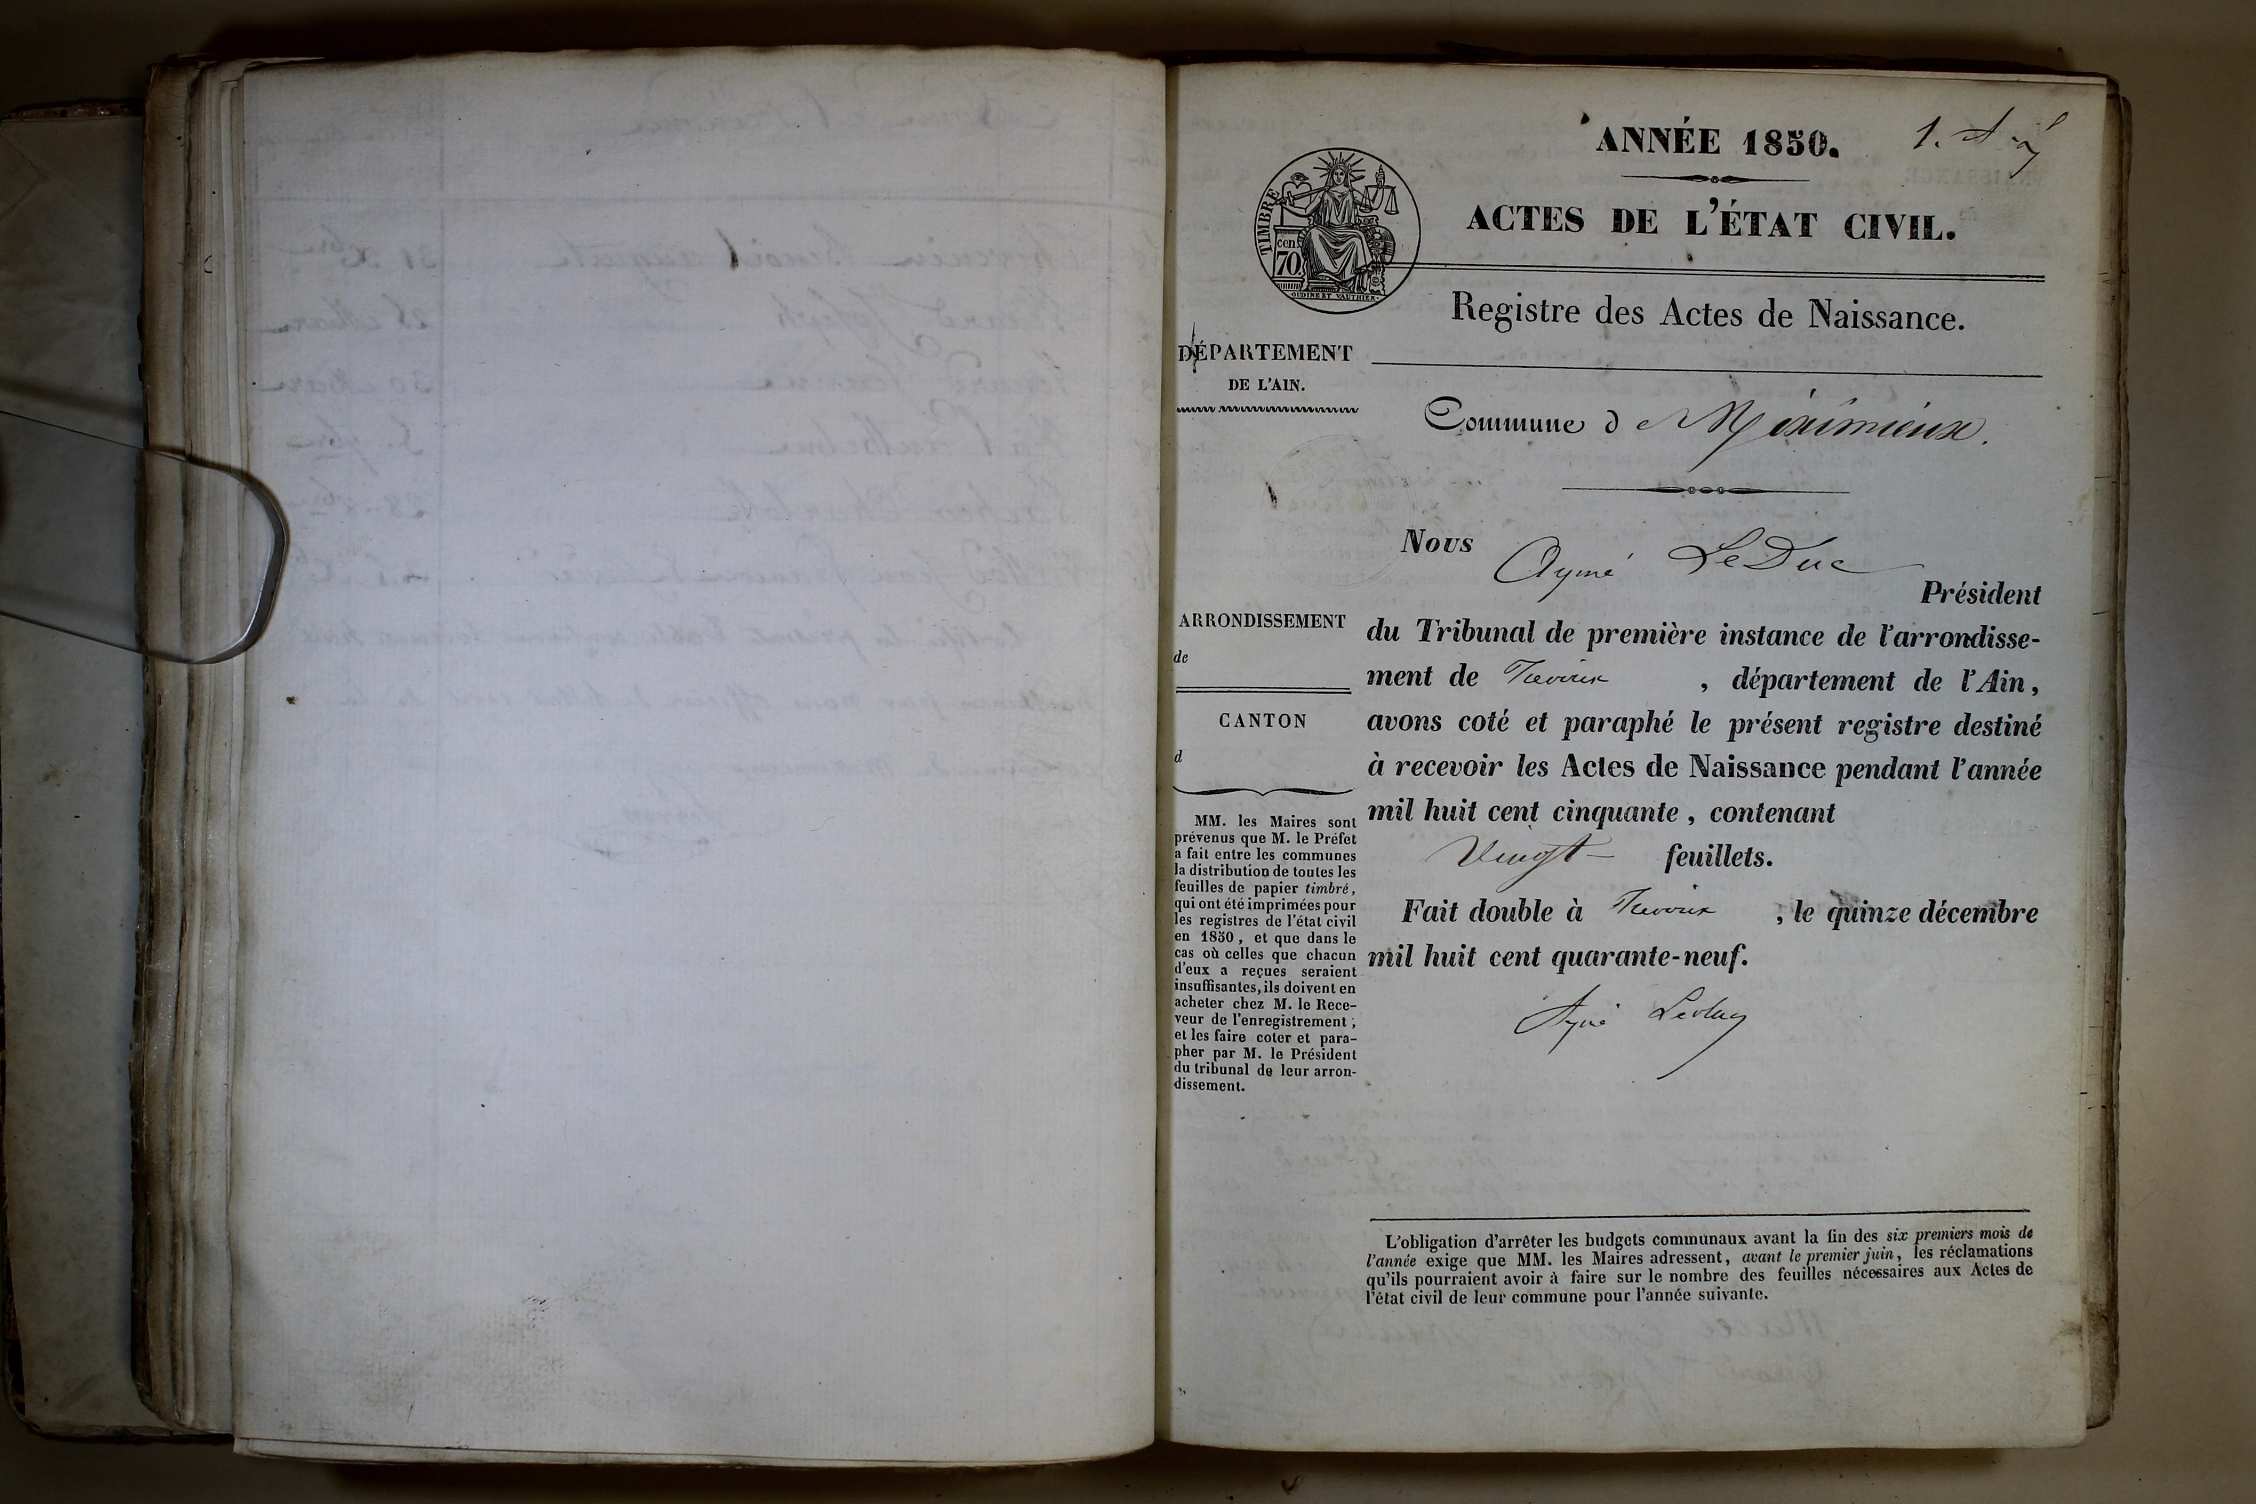 ANNÉE 1850.
1.
ACTES DE L'ÉTAT CIVIL.
TIMBRE
cen.
70
OUDINE ET VAUTHIER.
Registre des Actes de Naissance.
DÉPARTEMENT
DE L'AIN.
Commune d e Méximieux.
Nous Aymé LeDuc
Président
ARRONDISSEMENT
de
CANTON
d
du Tribunal de première instance de l'arrondisse-
ment de Trévoux , département de l'Ain,
avons coté et paraphé le présent registre destiné
à recevoir les Actes de Naissance pendant l'année
mil huit cent cinquante, contenant
Vingt feuillets.
Fait double à Trévoux , le quinze décembre
mil huit cent quarante-neuf.
Aymé Leduc
MM. les Maires sont
prévenus que M. le Préfet
a fait entre les communes
la distribution de toutes les
feuilles de papier timbré,
qui ont été imprimées pour
les registres de l'état civil
en 1850, et que dans le
cas où celles que chacun
d'eux a reçues seraient
insuffisantes, ils doivent en
acheter chez M. le Rece-
veur de l'enregistrement ;
et les faire coter et para-
pher par M. le Président
du tribunal de leur arron-
dissement.
L'obligation d'arrêter les budgets communaux avant la fin des six premiers mois de
l'année exige que MM. les Maires adressent, avant le premier juin, les réclamations
qu'ils pourraient avoir à faire sur le nombre des feuilles nécessaires aux Actes de
l'état civil de leur commune pour l'année suivante.